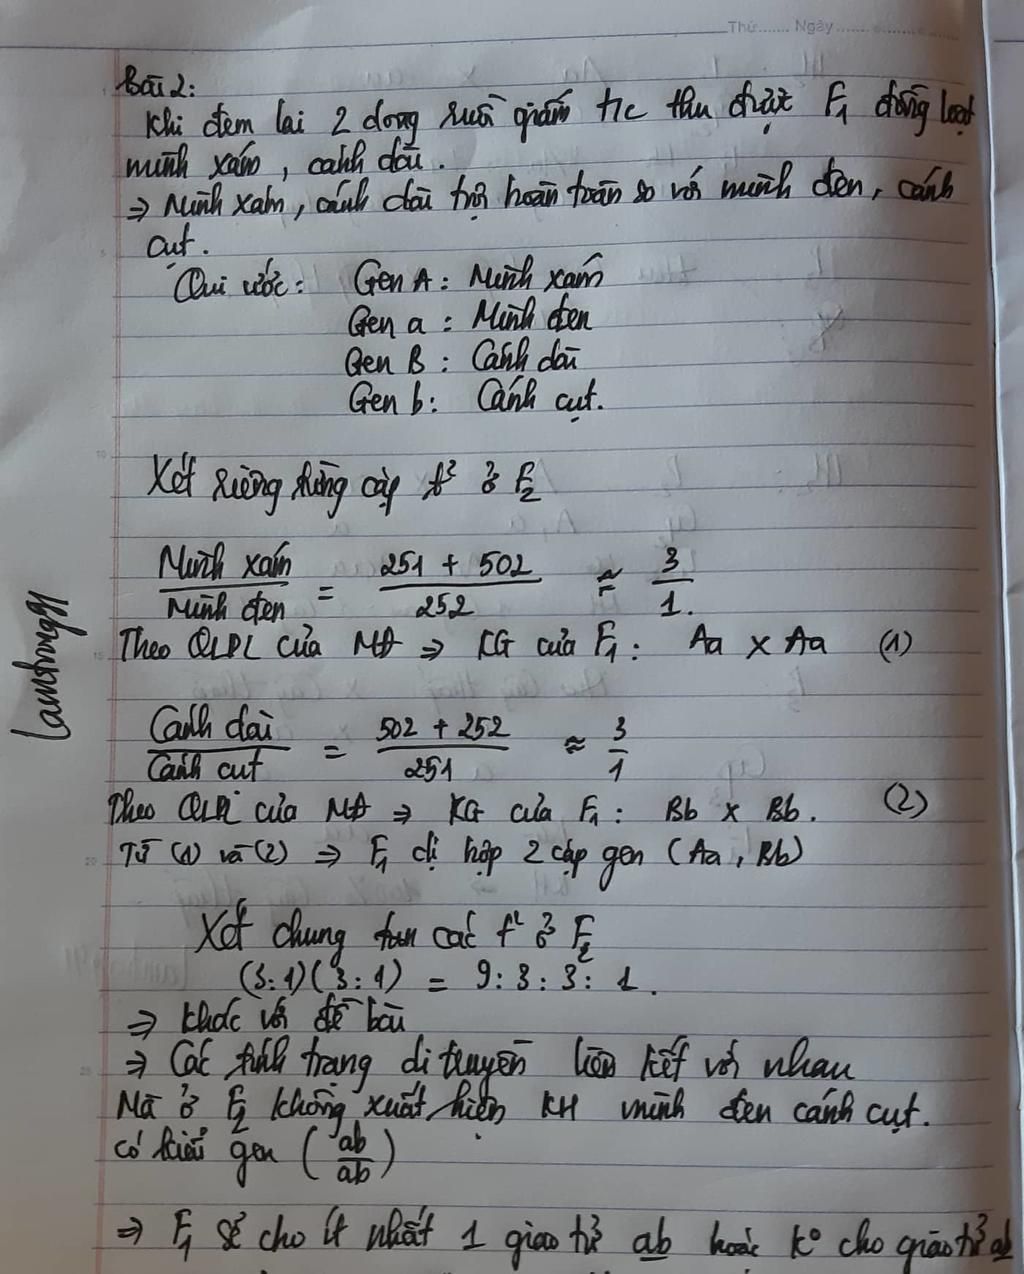 Thứ....... Ngày.......
Bài 2:
Khi đem lai 2 dòng ruồi giấm t/c thu được F₁ đồng loạt
mình xám, cánh dài.
⇒ Mình xám, cánh dài trội hoàn toàn so với mình đen, cánh
cụt.
Qui ước: Gen A: Mình xám
Gen a: Mình đen
Gen B: Cánh dài
Gen b: Cánh cụt.
Xét riêng từng cặp t² ở F₂
Mình xám / Mình đen = 251 + 502 / 252 ≈ 3 / 1.
Theo QLPL của MĐ ⇒ KG của F₁: Aa x Aa (1)
Cánh dài / Cánh cụt = 502 + 252 / 251 ≈ 3 / 1
Theo QLPL của MĐ ⇒ KG của F₁: Bb x Bb. (2)
Từ (1) và (2) ⇒ F₁ dị hợp 2 cặp gen (Aa, Bb)
Xét chung các t² ở F₂
(3:1)(3:1) = 9:3:3:1.
⇒ khác với đề bài
⇒ Các tính trạng di truyền liên kết với nhau
Mà ở F₂ không xuất hiện KH mình đen cánh cụt.
có kiểu gen (ab / ab)
⇒ F₁ sẽ cho ít nhất 1 giao tử ab hoặc k° cho giao tử ab